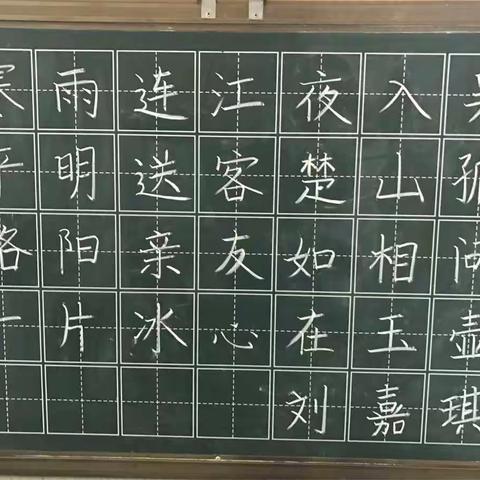 寒雨连江夜入吴
平明送客楚山孤
洛阳亲友如相问
一片冰心在玉壶
刘嘉琪